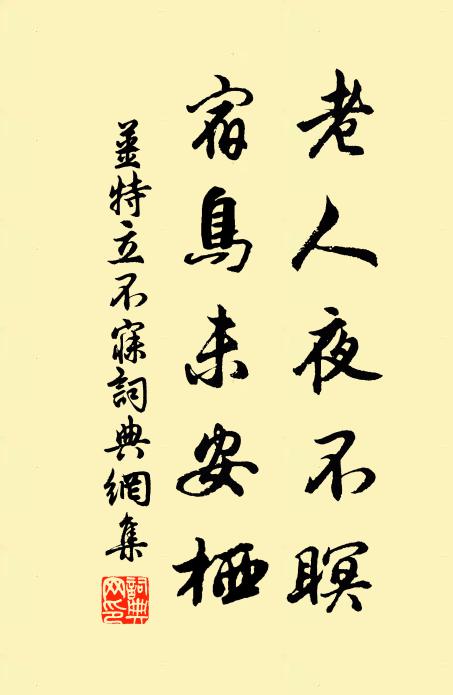 老人夜不瞑
宿鳥未安栖
姜特立不寐詞典網集
詞典網印